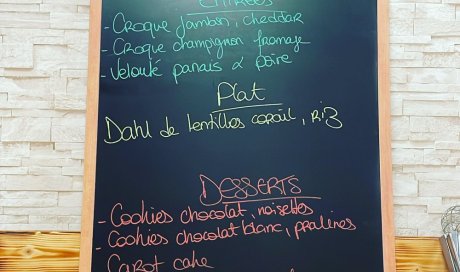 ENTRÉES
- Croque Jambon, cheddar
- Croque champignon fromage
- Velouté panais & poire
Plat
Dahl de lentilles corail, riz
DESSERTS
- Cookies chocolat, noisettes
- Cookies chocolat blanc, pralines
Carot cake